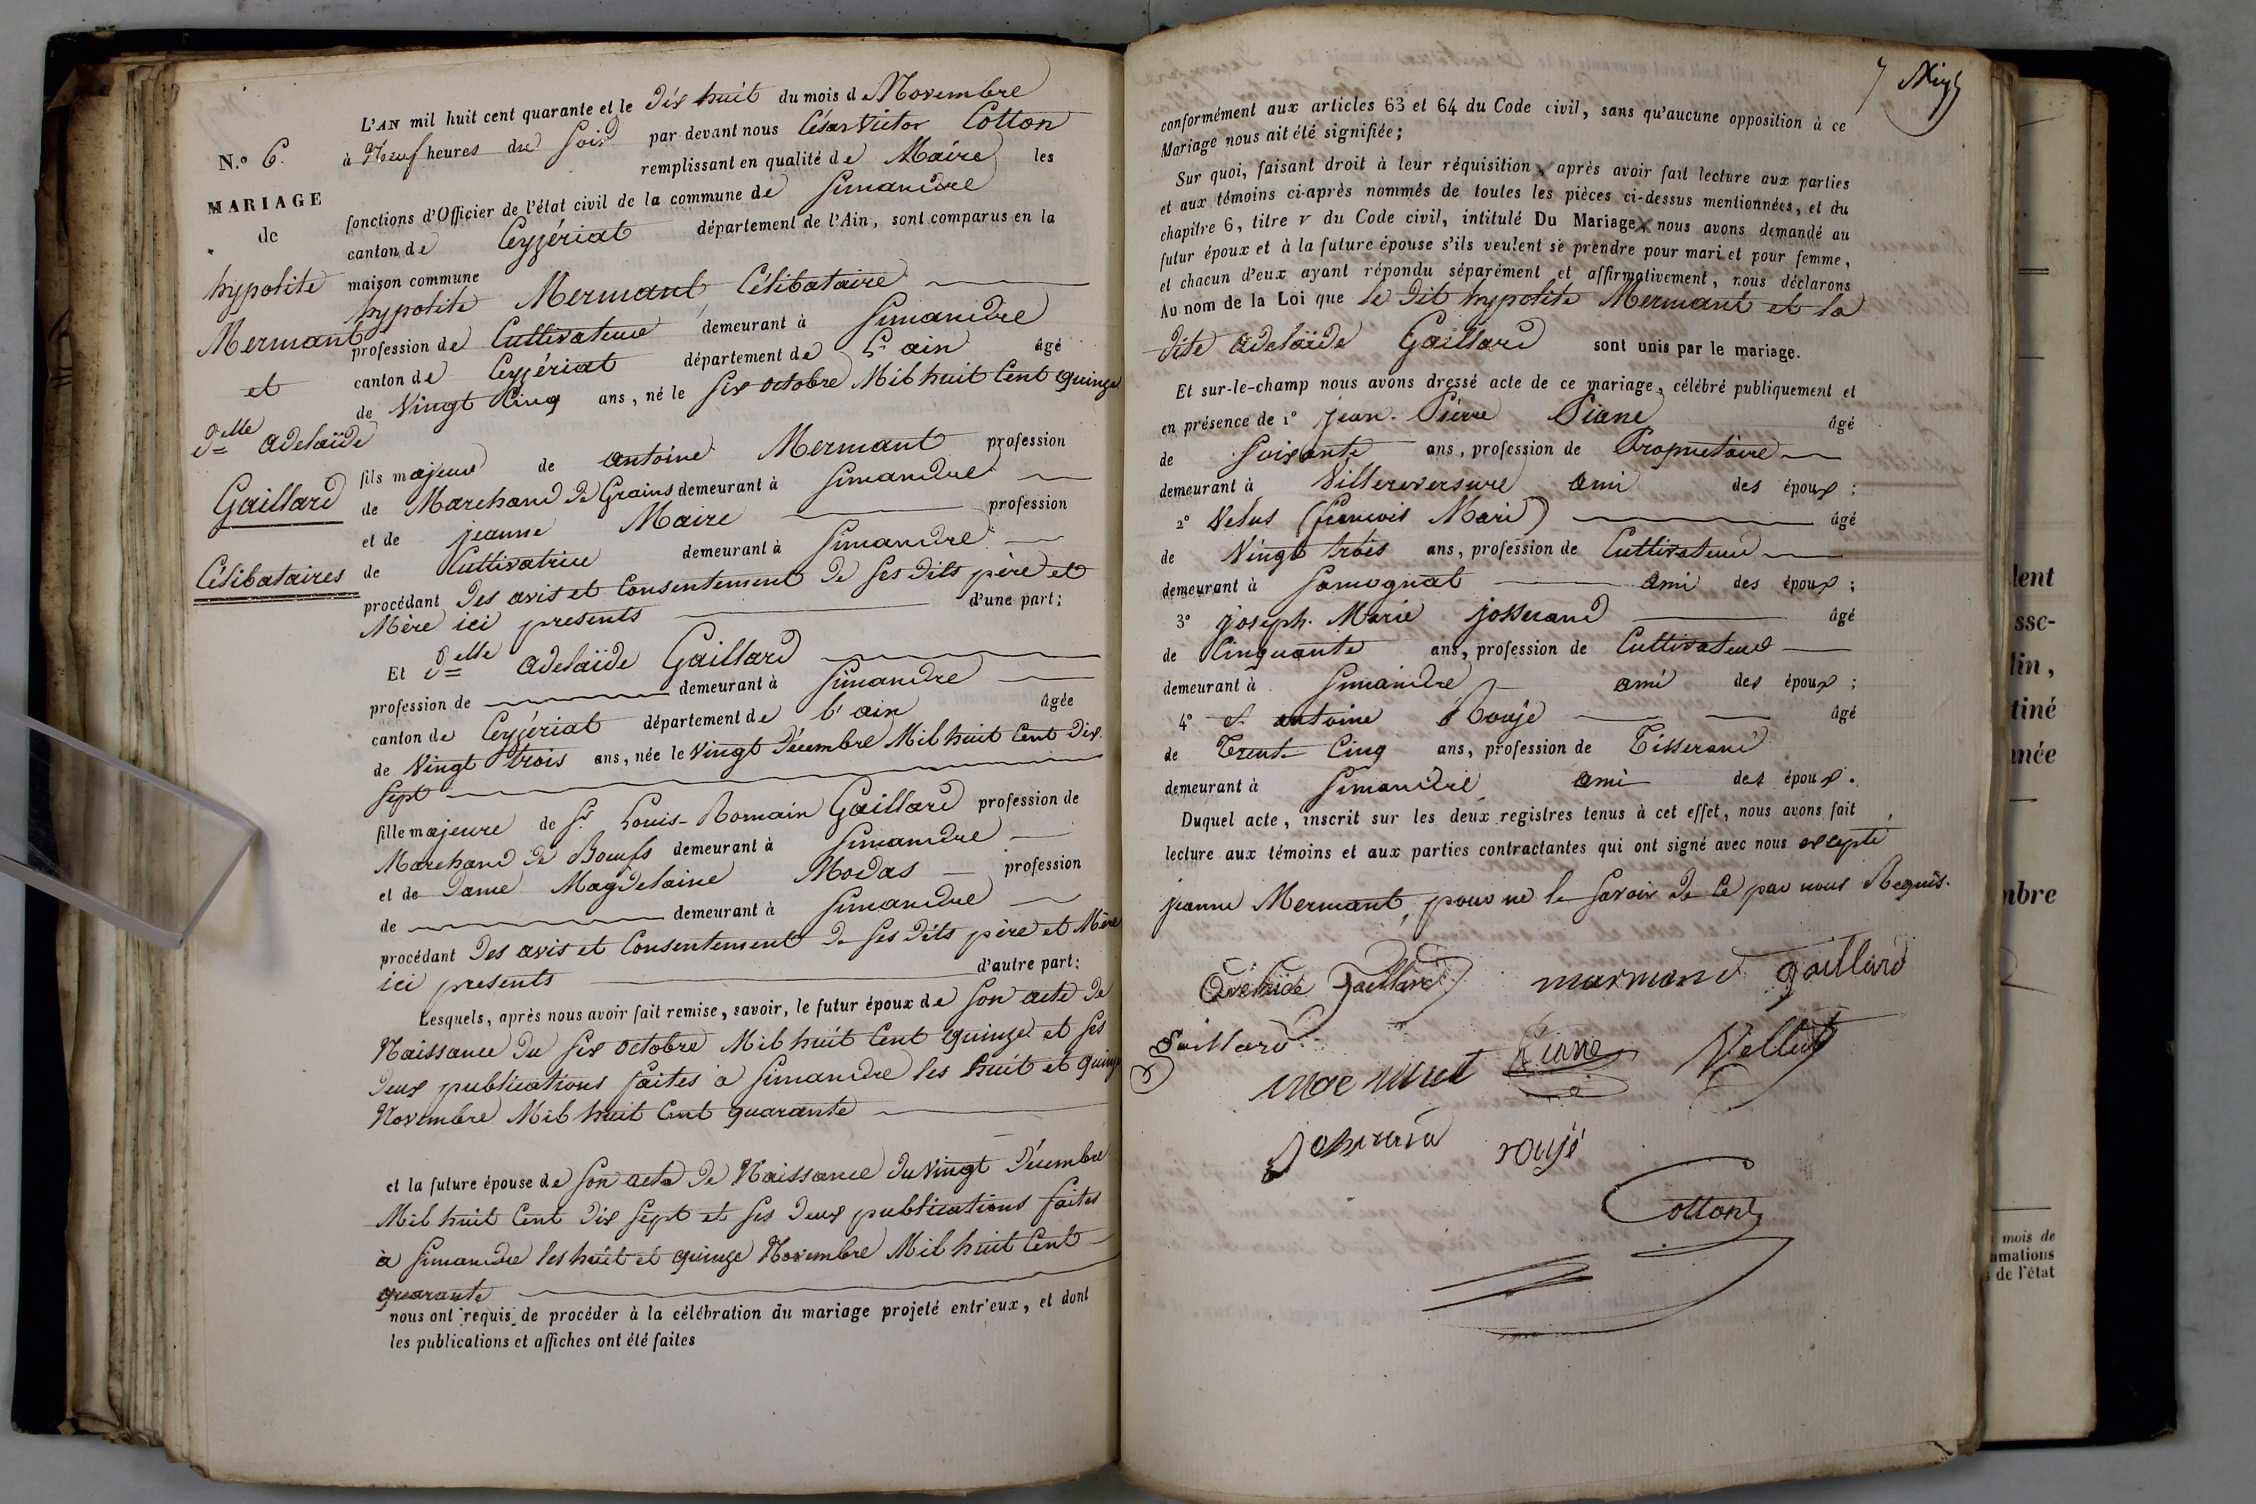 L'AN mil huit cent quarante et le dix huit du mois de Novembre
à Neuf heures du Soir par-devant nous César Victor Cotton
remplissant en qualité de Maire les
fonctions d'Officier de l'état civil de la commune de Simandre
canton de Ceyzériat département de l'Ain, sont comparus en la
maison commune
hypolite Mermant, Célibataire
profession de Cultivateur demeurant à Simandre
canton de Ceyzériat département de L'ain âgé
de Vingt Cinq ans, né le six octobre Mil huit Cent quinze
fils majeur de antoine Mermant profession
de Marchand de Grains demeurant à Simandre
et de jeanne Maire profession
de Cultivatrice demeurant à Simandre
procédant des avis et Consentement de ses dits père et
Mère ici presents d'une part;
Et delle adelaïde Gaillard
profession de demeurant à Simandre
canton de Ceyzériat département de l'ain âgée
de Vingt trois ans, née le Vingt décembre Mil huit Cent dix
sept
fille majeure de Sr Louis-Romain Gaillard profession de
Marchand de Boeufs demeurant à Simandre
et de dame Magdelaine Modas profession
de demeurant à Simandre
procédant des avis et Consentement de ses dits père et Mère
ici presents d'autre part;
Lesquels, après nous avoir fait remise, savoir, le futur époux de son acte de
Naissance du six octobre Mil huit Cent quinze et ses
deux publications faites a Simandre les huit et quinze
Novembre Mil huit Cent quarante
et la future épouse de son acte de Naissance du Vingt décembre
Mil huit Cent dix sept et ses deux publications faites
à Simandre les huit et quinze Novembre Mil huit Cent
quarante
nous ont requis de procéder à la célébration du mariage projeté entr'eux, et dont
les publications et affiches ont été faites
N.º 6.
MARIAGE
de
hypolite
Mermant
et
delle adelaïde
Gaillard
Célibataires
7
conformément aux articles 63 et 64 du Code civil, sans qu'aucune opposition à ce
Mariage nous ait été signifiée;
Sur quoi, faisant droit à leur réquisition, après avoir fait lecture aux parties
et aux témoins ci-après nommés de toutes les pièces ci-dessus mentionnées, et du
chapitre 6, titre v du Code civil, intitulé Du Mariage, nous avons demandé au
futur époux et à la future épouse s'ils veulent se prendre pour mari et pour femme,
et chacun d'eux ayant répondu séparément et affirmativement, nous déclarons
Au nom de la Loi que le dit hypolite Mermant et la
dite adelaïde Gaillard sont unis par le mariage.
Et sur-le-champ nous avons dressé acte de ce mariage, célébré publiquement et
en présence de 1º jean-Pierre Piane âgé
de soixante ans, profession de Propriétaire
demeurant à Villereversure ami des époux;
2º Velus (francois Marie) âgé
de Vingt trois ans, profession de Cultivateur
demeurant à Samognat ami des époux;
3º joseph-Marie josserand âgé
de Cinquante ans, profession de Cultivateur
demeurant à Simandre ami des époux;
4º antoine Rouje âgé
de Trente Cinq ans, profession de Tisserand
demeurant à Simandre ami des époux.
Duquel acte, inscrit sur les deux registres tenus à cet effet, nous avons fait
lecture aux témoins et aux parties contractantes qui ont signé avec nous excepté
jeanne Mermant, pour ne le savoir de ce par nous Requis.
Adelaide Gaillard marmand gaillard
Gaillard
Piane Vellut
roujé
Cotton
lent
sse-
lin,
tiné
nnée
mbre
mois de
amations
de l'état